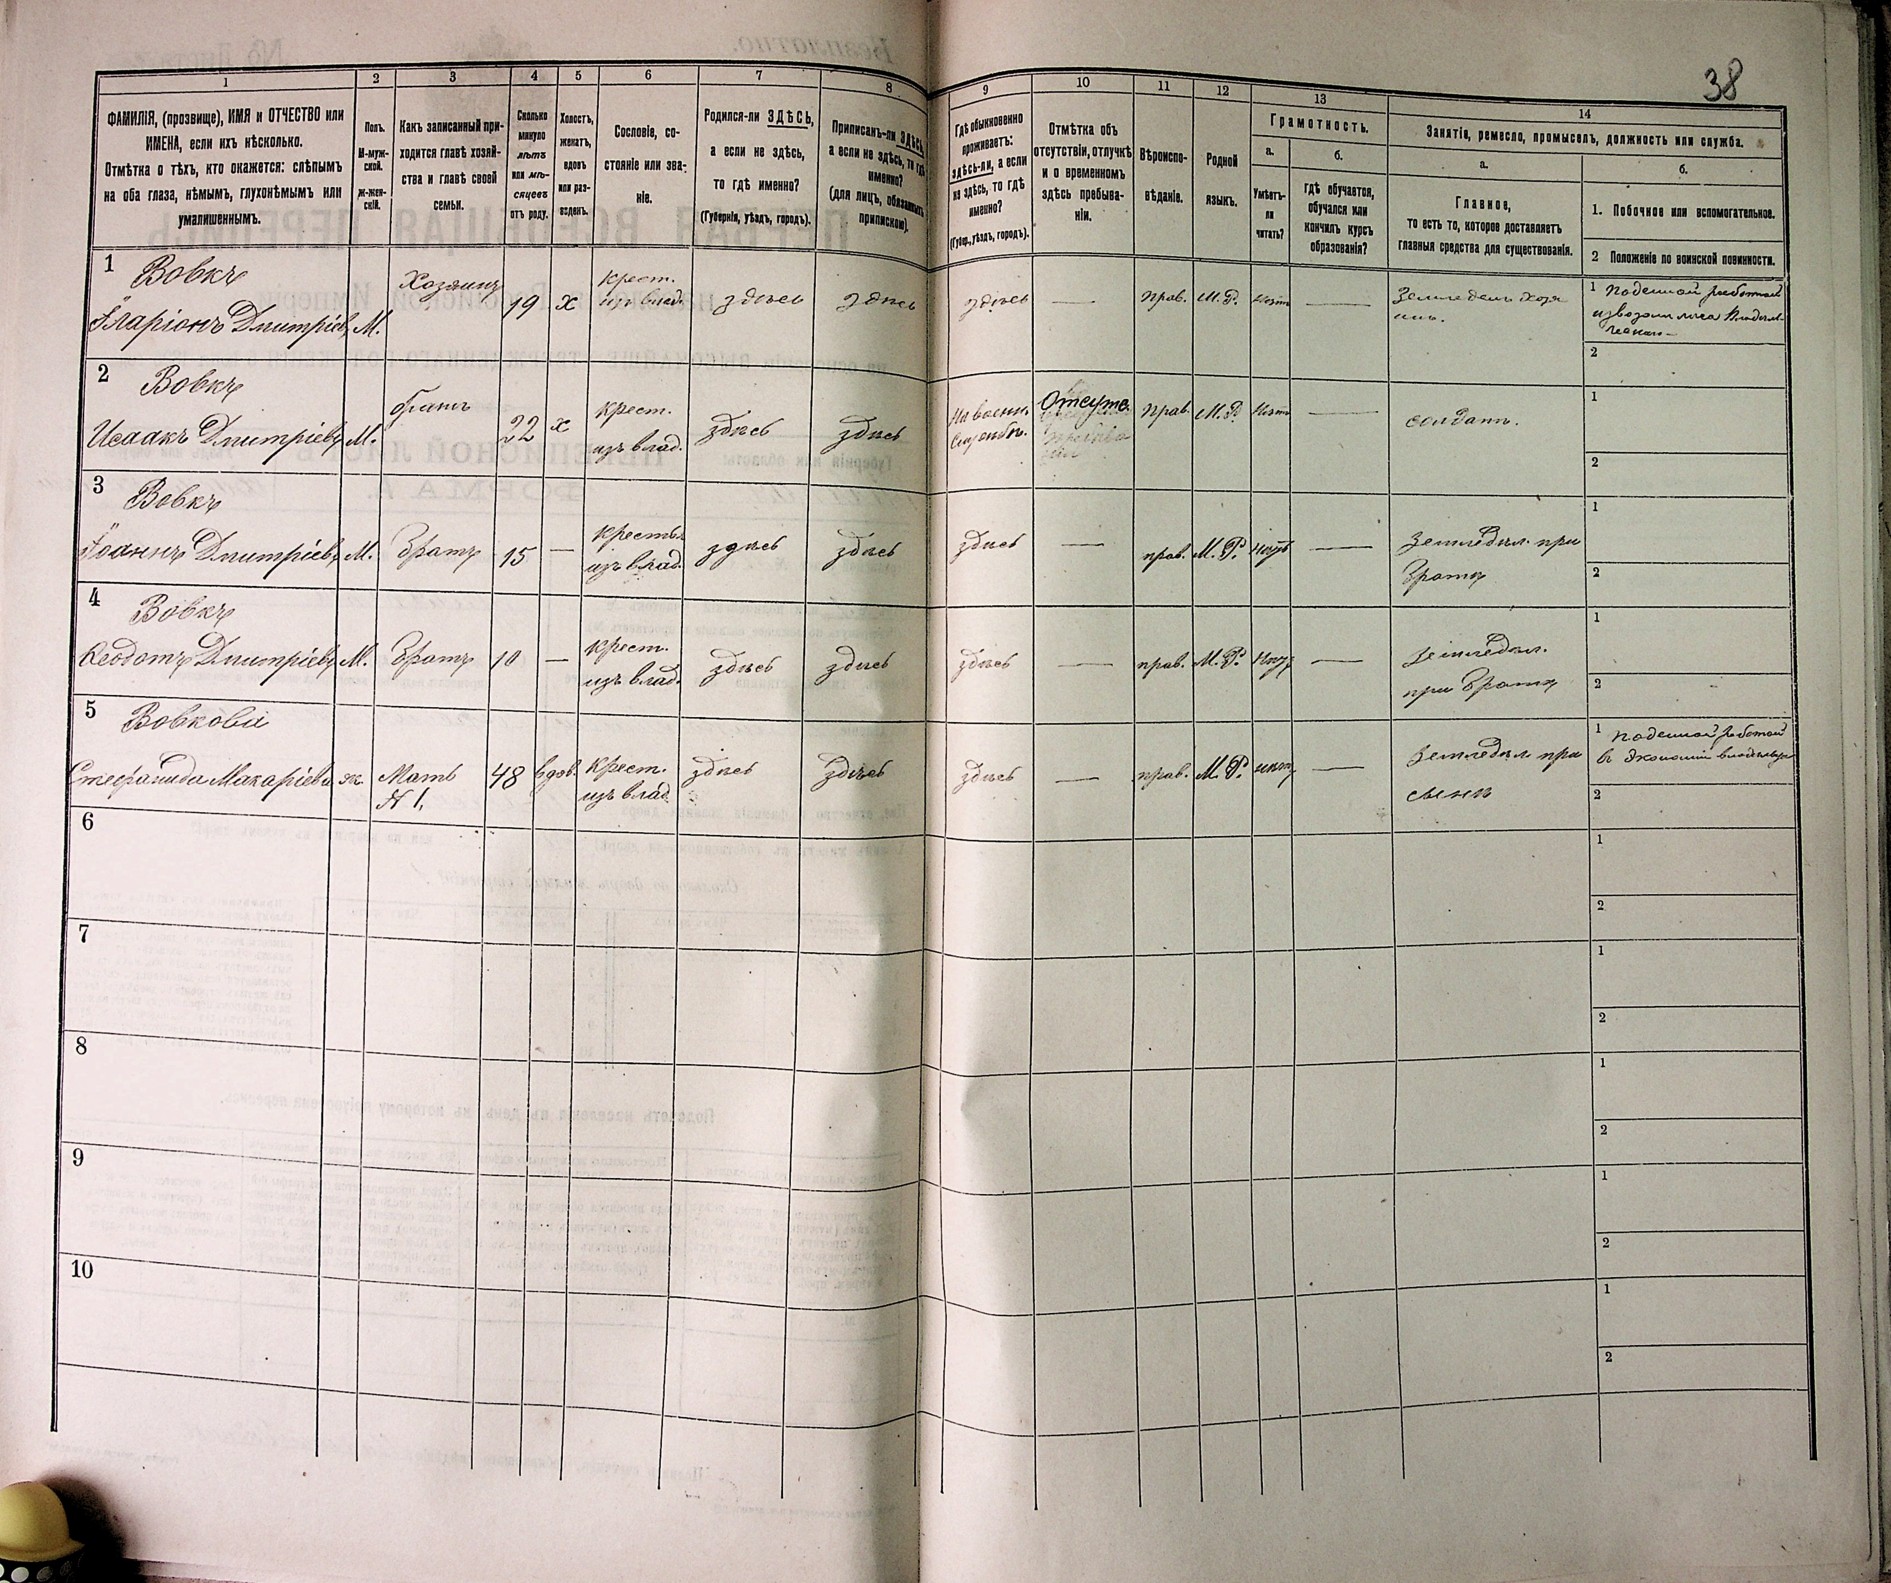 38
1 2 3 4 5 6 7 8 9 10 11 12 13 14
ФАМИЛІЯ, (прозвище), ИМЯ и ОТЧЕСТВО или
ИМЕНА, если ихъ нѣсколько.
Отмѣтка о тѣхъ, кто окажется: слѣпымъ
на оба глаза, нѣмымъ, глухонѣмымъ или
умалишеннымъ.
Полъ.
М-муж-
ской.
ж-жен-
скій.
Какъ записанный при-
ходится главѣ хозяй-
ства и главѣ своей
семьи.
Сколько
минуло
лѣтъ
или мѣ-
сяцевъ
отъ роду.
Холостъ,
женатъ,
вдовъ
или раз-
веденъ.
Сословіе, со-
стояніе или зва-
ніе.
Родился-ли ЗДѢСЬ,
а если не здѣсь,
то гдѣ именно?
(Губернія, уѣздъ, городъ).
Приписанъ-ли ЗДѢСЬ,
а если не здѣсь, то гдѣ
именно?
(для лицъ, обязанныхъ
припискою).
Гдѣ обыкновенно
проживаетъ:
здѣсь-ли, а если
не здѣсь, то гдѣ
именно?
(Губер., уѣздъ, городъ).
Отмѣтка объ
отсутствіи, отлучкѣ
и о временномъ
здѣсь пребыва-
ніи.
Вѣроиспо-
вѣданіе.
Родной
языкъ.
Грамотность.
а.
Умѣетъ-
ли
читать?
б.
гдѣ обучается,
обучался или
кончилъ курсъ
образованія?
Занятіе, ремесло, промыселъ, должность или служба.
а.
Главное,
то есть то, которое доставляетъ
главныя средства для существованія.
б.
1. Побочное или вспомогательное.
2 Положеніе по воинской повинности.
1 Вовкъ Хозяинъ крест. 1 Поденной работой
Іларіонъ Дмитріевъ М. 19 х изъ влад. здѣсь здѣсь здѣсь — прав. М. Р. нѣтъ — Земледел. хозя
инъ.
2
2 Вовкъ братъ крест. На воен. Отсутс. 1
Исаакъ Дмитріевъ М. 22 х изъ влад. здѣсь здѣсь службѣ. прав. М. Р. нѣтъ — солдатъ.
2
3 Вовкъ крестьян. 1
Іоаннъ Дмитріевъ М. Братъ 15 — изъ влад. здѣсь здѣсь здѣсь — прав. М. Р. нѣтъ — Земледѣл. при
братѣ 2
4 Вовкъ крест. 1
Ѳеодотъ Дмитріевъ М. Братъ 10 — изъ влад. здѣсь здѣсь здѣсь — прав. М. Р. нѣтъ — Земледѣл.
при братѣ 2
5 Вовкова крест. 1 Поденной работой
Стефанида Макаріева ж. Мать 48 вдов. изъ влад. здѣсь здѣсь здѣсь — прав. М. Р. нѣтъ — Земледѣл. при в экономіи
№ 1. сынѣ 2
6 1
2
7 1
2
8 1
2
9 1
2
10 1
2